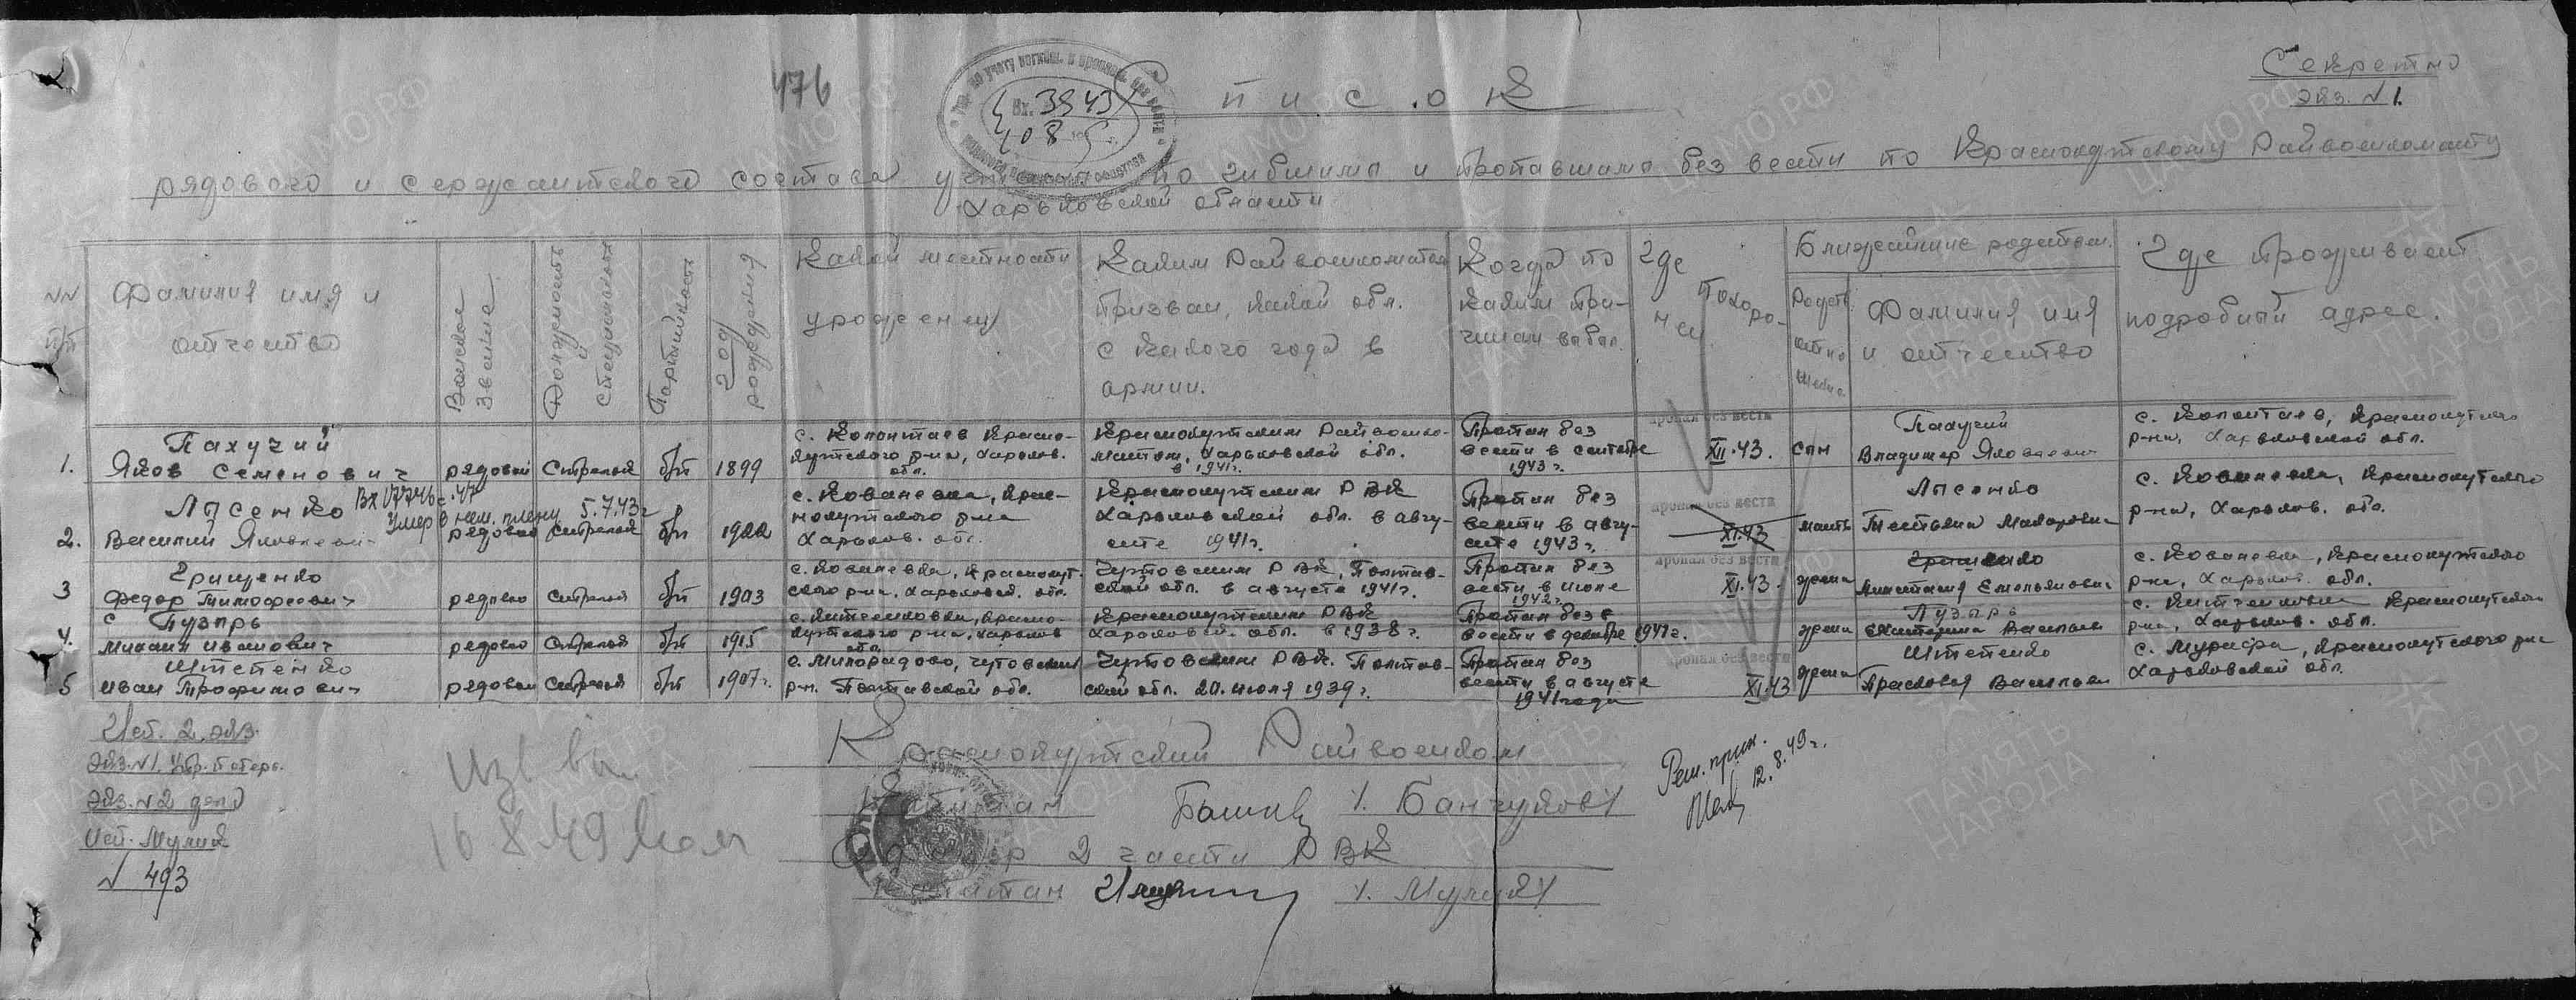 476
Список
Секретно
Экз. №1.
Вх. 3943
рядового и сержантского состава учтенного погибшими и пропавшими без вести по Краснокутскому Райвоенкомату
Харьковской области
№№ п/п
Фамилия имя и отчество
Воинское звание
Должность и специальность
Партийность
Год рождения
Какой местности уроженец
Каким Райвоенкоматом призван, какой обл. с какого года в армии.
Когда по каким причинам выбыл
Где похоронен
Ближайшие родствен.
Родств. отношение
Фамилия, имя и отчество
Где проживает подробный адрес.
1.
Пахучий
Яков Семенович
рядовой
Стрелок
б/п
1899
с. Колонтаев Красно-
кутского р-на, Харьков.
обл.
Краснокутским Райвоенко-
матом, Харьковской обл.
в 1941г.
Пропал без
вести в сентябре
1943 г.
пропал без вести
XII.43.
сын
Пахучий
Владимир Яковлевич
с. Колонтаев, Краснокутского
р-на, Харьковской обл.
2.
Лысенко
Василий Яковлевич
Умер в нем. плену 5.7.43г
рядовой
Стрелок
б/п
1922
с. Кованевка, Крас-
нокутского р-на
Харьков. обл.
Краснокутским РВК
Харьковской обл. в авгу-
сте 1941г.
Пропал без
вести в авгу-
сте 1943 г.
пропал без вести
XI.43
мать
Лысенко
Татьяна Макаровна
с. Кованевка, Краснокутского
р-на, Харьков. обл.
3
Грищенко
Федор Тимофеевич
рядово
Стрелок
б/п
1903
с. Кованевка, Краснокут-
ского р-на, Харьковск. обл.
Чутовским РВК, Полтав-
ской обл. в августе 1941г.
Пропал без
вести в июне
1942г.
пропал без вести
XI.43.
жена
Грищенко
Анастасия Емельяновна
с. Кованевка, Краснокутского
р-на, Харьков. обл.
4.
Пузырь
Михаил Иванович
рядово
Стрелок
б/п
1915
Краснокутским РВК
Харьковск. обл. в 1938 г.
Пропал без
вести в декабре 1941г.
жена
Пузырь
Екатерина Васильев
р-на, Харьков. обл.
5
Штепенко
Иван Трофимович
рядовой
Стрелок
б/п
1907г.
с. Милорадово, Чутовским
р-н. Полтавской обл.
Чутовским РВК. Полтав-
ской обл. 20. июля 1939г.
Пропал без
вести в августе
1941 года
пропал без вести
XI.43
жена
Штепенко
Прасковья Васильев
с. Мурафа, Краснокутского р-на
Харьковской обл.
Исп. 2 экз.
Экз. №1. Упр. потерь.
Экз. №2 дело
Исп. Мулик
№ 493
16 8.49
Краснокутский Райвоенком
Капитан
РВК
2 части
Капитан
Реш. прин.
12.8.49г.
ПАМЯТЬ НАРОДА
ЦАМО РФ